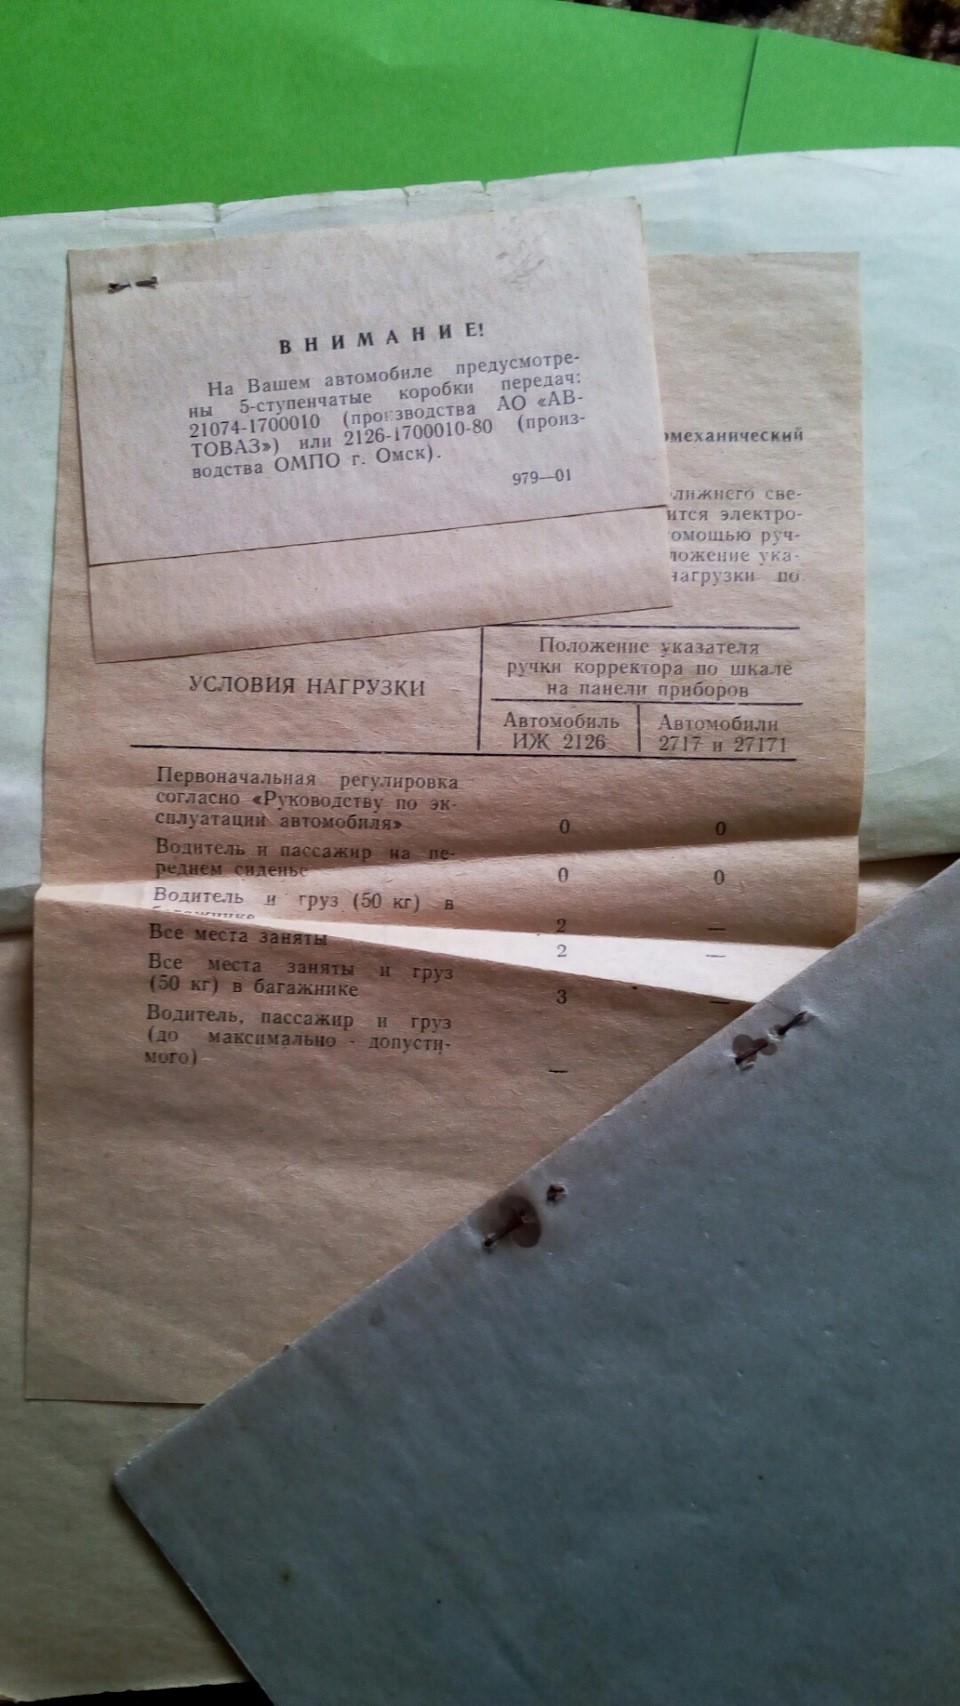 ВНИМАНИЕ!
На Вашем автомобиле предусмотре-
ны 5-ступенчатые коробки передач:
21074-1700010 (производства АО «АВ-
ТОВАЗ») или 2126-1700010-80 (произ-
водства ОМПО г. Омск).
979—01
омеханический
лижнего све-
ится электро-
омощью руч-
ложение ука-
нагрузки по
УСЛОВИЯ НАГРУЗКИ
Положение указателя
ручки корректора по шкале
на панели приборов
Автомобиль
ИЖ 2126
Автомобили
2717 и 27171
Первоначальная регулировка
согласно «Руководству по эк-
сплуатации автомобиля» 0 0
Водитель и пассажир на пе-
реднем сиденье 0 0
Водитель и груз (50 кг) в
багажнике 2 —
Все места заняты 2 —
Все места заняты и груз
(50 кг) в багажнике 3 —
Водитель, пассажир и груз
(до максимально - допусти-
мого) —